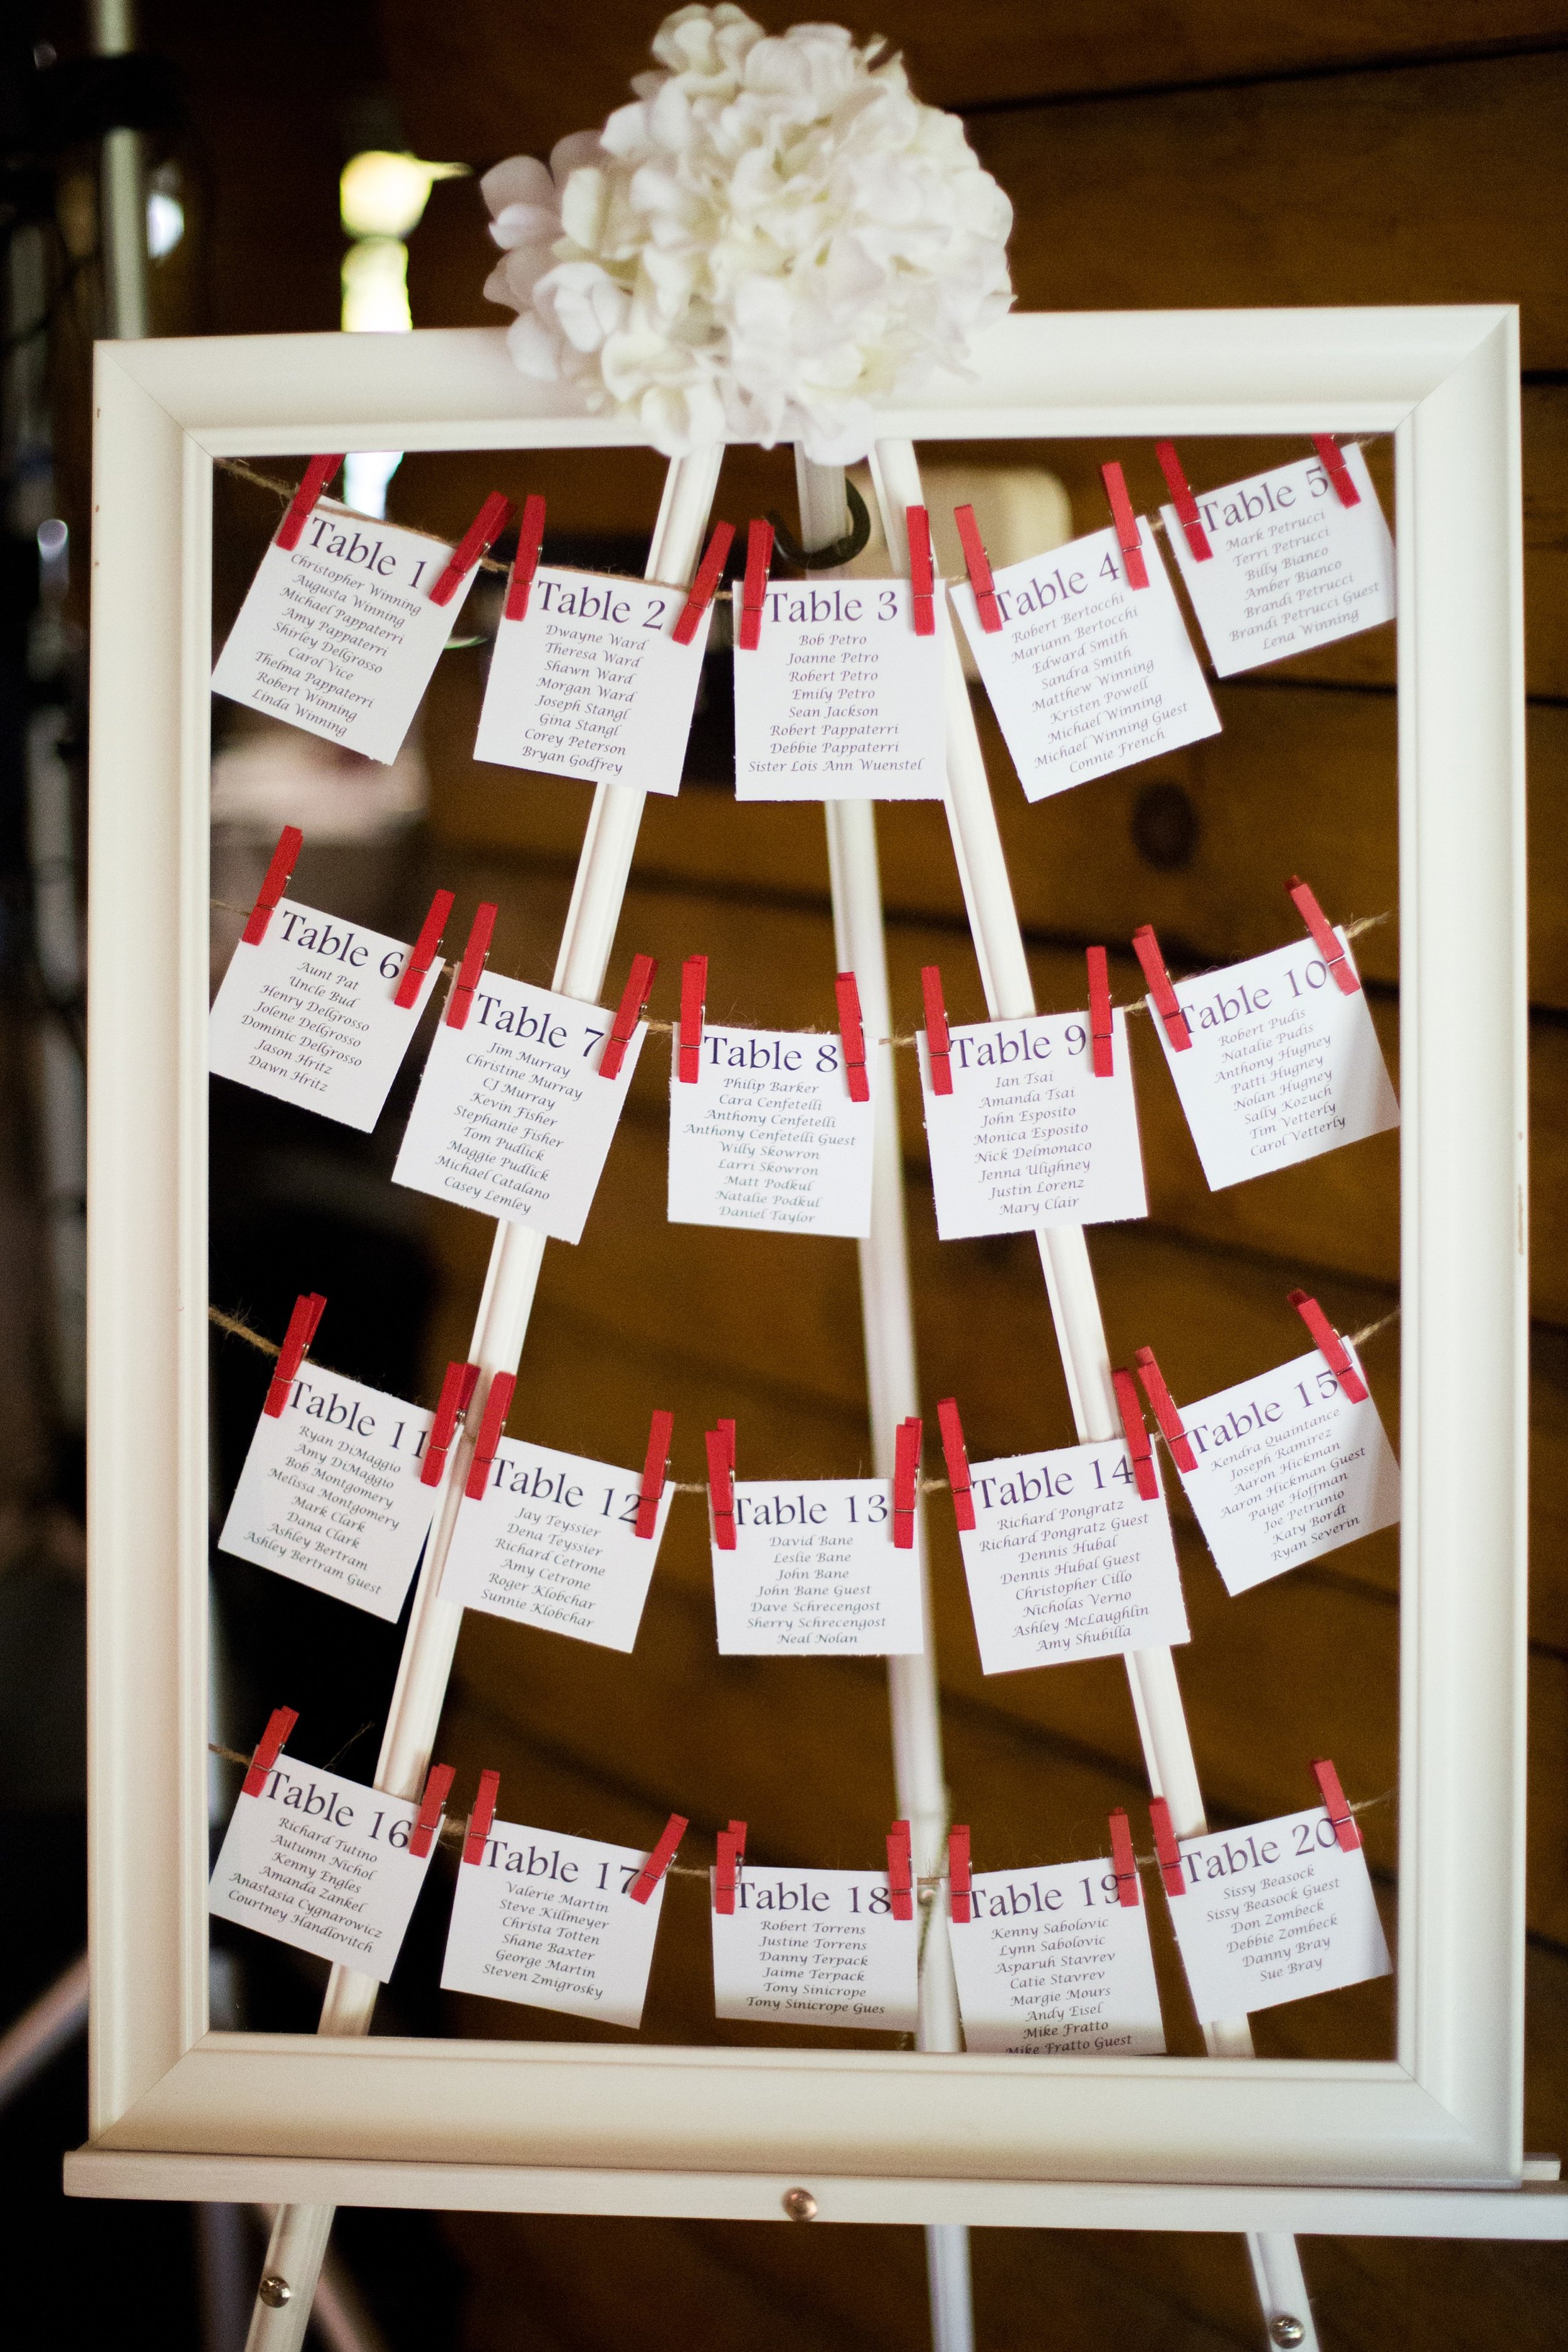 Table 1
Christopher Winning
Augusta Winning
Michael Pappaterri
Amy Pappaterri
Shirley DelGrosso
Carol Vice
Thelma Pappaterri
Robert Winning
Linda Winning
Table 2
Dwayne Ward
Theresa Ward
Shawn Ward
Morgan Ward
Joseph Stangl
Gina Stangl
Corey Peterson
Bryan Godfrey
Table 3
Bob Petro
Joanne Petro
Robert Petro
Emily Petro
Sean Jackson
Robert Pappaterri
Debbie Pappaterri
Sister Lois Ann Wuenstel
Table 4
Robert Bertocchi
Mariann Bertocchi
Edward Smith
Sandra Smith
Matthew Winning
Kristen Powell
Michael Winning
Michael Winning Guest
Connie French
Table 5
Mark Petrucci
Terri Petrucci
Billy Bianco
Amber Bianco
Brandi Petrucci
Brandi Petrucci Guest
Lena Winning
Table 6
Aunt Pat
Uncle Bud
Henry DelGrosso
Jolene DelGrosso
Dominic DelGrosso
Jason Hritz
Dawn Hritz
Table 7
Jim Murray
Christine Murray
CJ Murray
Kevin Fisher
Stephanie Fisher
Tom Pudlick
Maggie Pudlick
Michael Catalano
Casey Lemley
Table 8
Philip Barker
Cara Cenfetelli
Anthony Cenfetelli
Anthony Cenfetelli Guest
Willy Skowron
Larri Skowron
Matt Podkul
Natalie Podkul
Daniel Taylor
Table 9
Ian Tsai
Amanda Tsai
John Esposito
Monica Esposito
Nick Delmonaco
Jenna Ulighney
Justin Lorenz
Mary Clair
Table 10
Robert Pudis
Natalie Pudis
Anthony Hugney
Patti Hugney
Nolan Hugney
Sally Kozuch
Tim Vetterly
Carol Vetterly
Table 11
Ryan DiMaggio
Amy DiMaggio
Bob Montgomery
Melissa Montgomery
Mark Clark
Dana Clark
Ashley Bertram
Ashley Bertram Guest
Table 12
Jay Teyssier
Dena Teyssier
Richard Cetrone
Amy Cetrone
Roger Klobchar
Sunnie Klobchar
Table 13
David Bane
Leslie Bane
John Bane
John Bane Guest
Dave Schrecengost
Sherry Schrecengost
Neal Nolan
Table 14
Richard Pongratz
Richard Pongratz Guest
Dennis Hubal
Dennis Hubal Guest
Christopher Cillo
Nicholas Verno
Ashley McLaughlin
Amy Shubilla
Table 15
Kendra Quaintance
Joseph Ramirez
Aaron Hickman
Aaron Hickman Guest
Paige Hoffman
Joe Petrunio
Katy Bordt
Ryan Severin
Table 16
Richard Tutino
Autumn Nichol
Kenny Engles
Amanda Zankel
Anastasia Cygnarowicz
Courtney Handlovitch
Table 17
Valerie Martin
Steve Killmeyer
Christa Totten
Shane Baxter
George Martin
Steven Zmigrosky
Table 18
Robert Torrens
Justine Torrens
Danny Terpack
Jaime Terpack
Tony Sinicrope
Tony Sinicrope Gues
Table 19
Kenny Sabolovic
Lynn Sabolovic
Asparuh Stavrev
Catie Stavrev
Margie Mours
Andy Eisel
Mike Fratto
Mike Fratto Guest
Table 20
Sissy Beasock
Sissy Beasock Guest
Don Zombeck
Debbie Zombeck
Danny Bray
Sue Bray